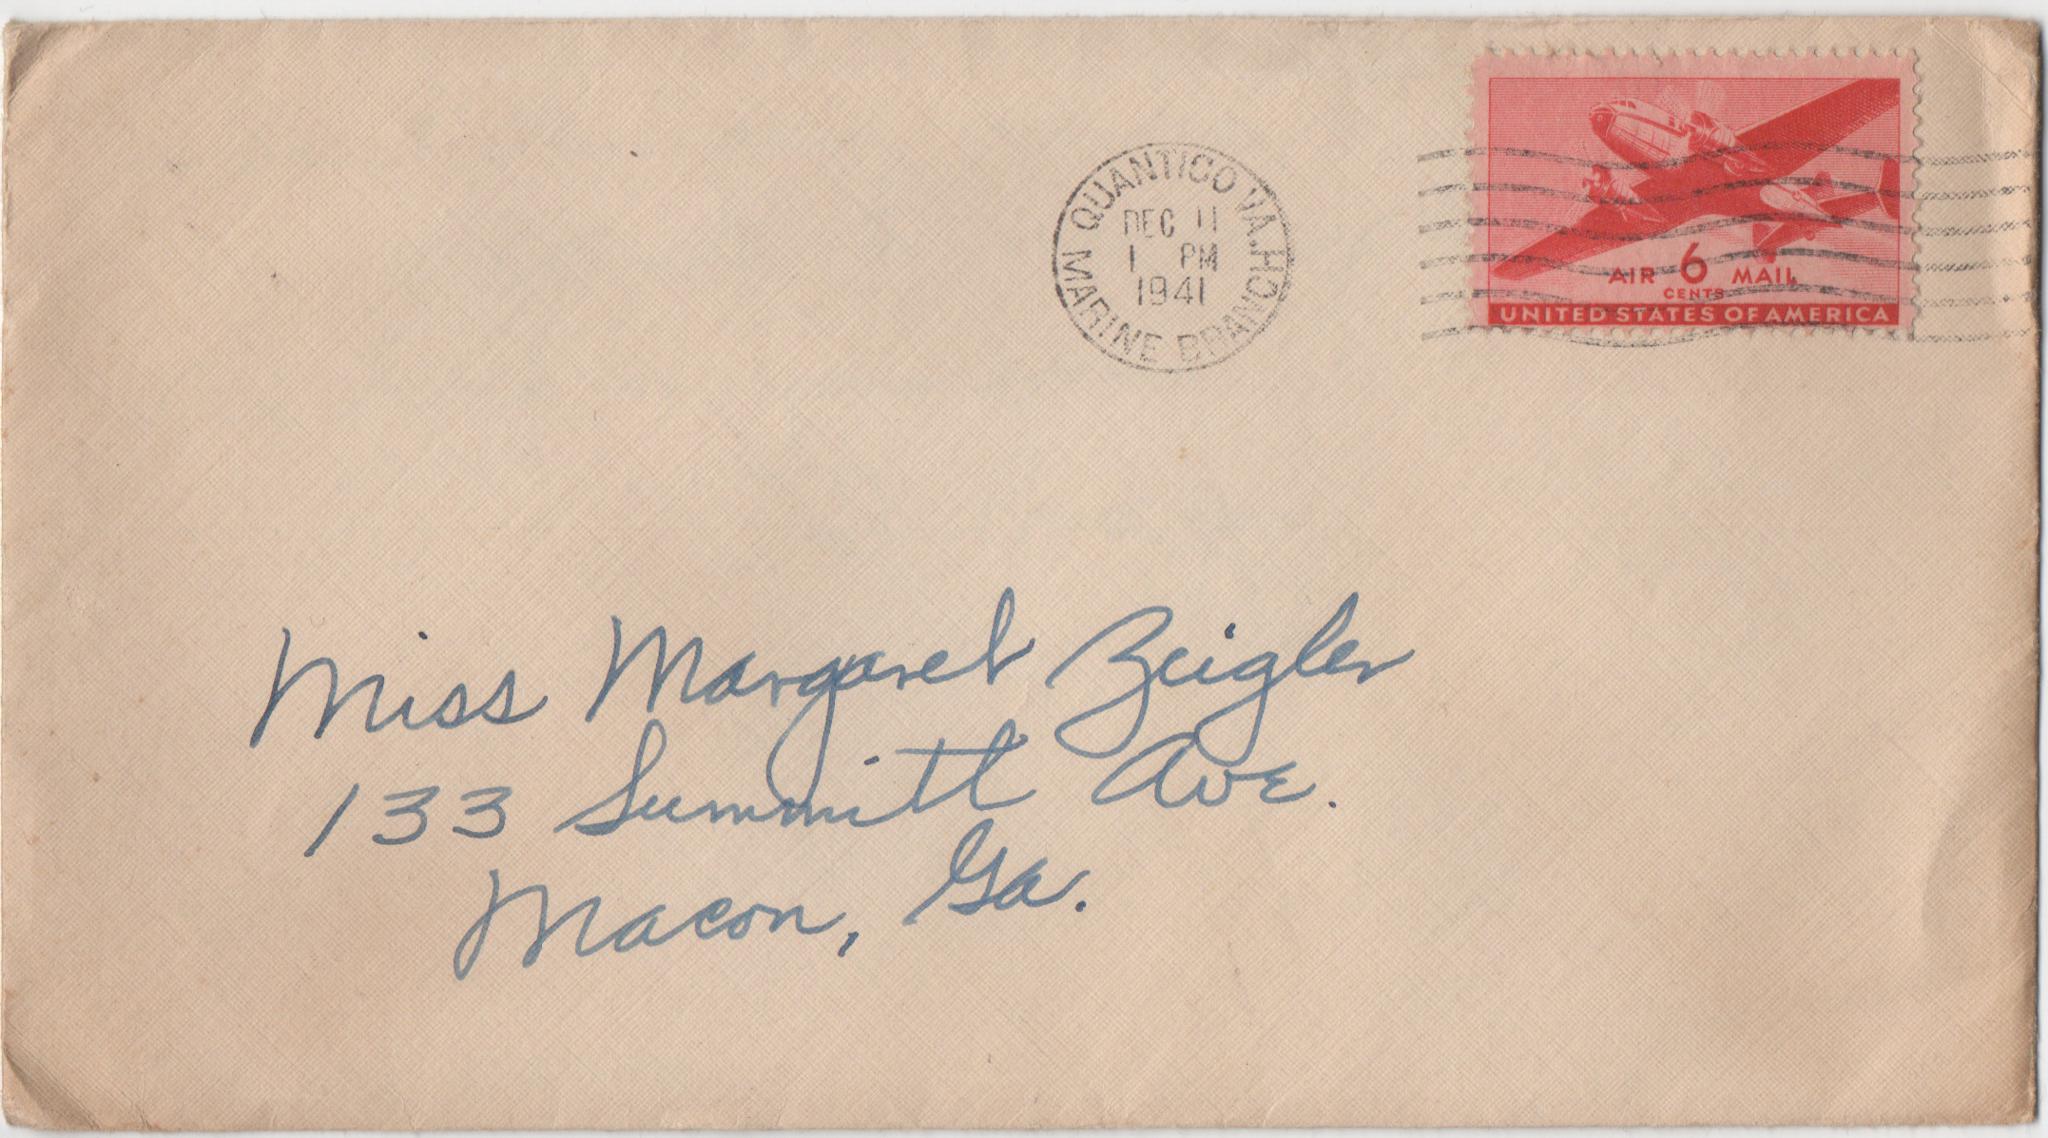 QUANTICO VA.
MARINE BRANCH
DEC 11
1 PM
1941
AIR 6 MAIL
CENTS
UNITED STATES OF AMERICA
Miss Margaret Zeigler
133 Summitt Ave.
Macon, Ga.